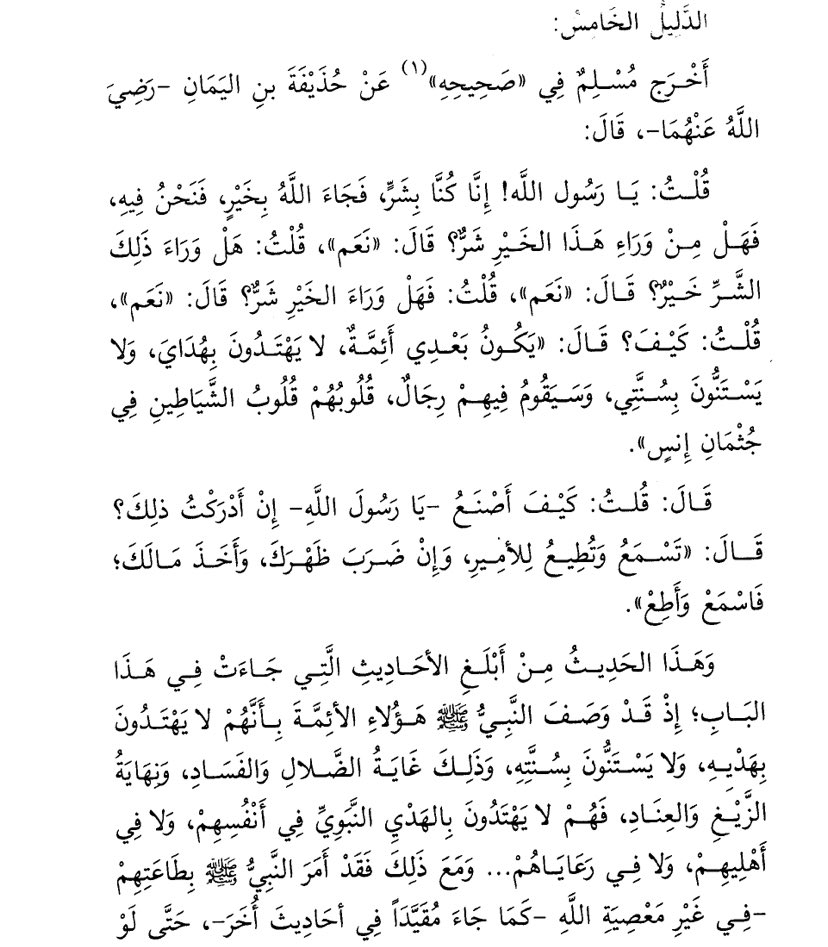 الدَّلِيلُ الخَامِسُ:
أَخْرَجَ مُسْلِمٌ فِي «صَحِيحِهِ»(١) عَنْ حُذَيْفَةَ بنِ اليَمَانِ -رَضِيَ
اللَّهُ عَنْهُمَا-، قَالَ:
قُلْتُ: يَا رَسُول اللَّه! إِنَّا كُنَّا بِشَرٍّ، فَجَاءَ اللَّهُ بِخَيْرٍ، فَنَحْنُ فِيهِ،
فَهَلْ مِنْ وَرَاءِ هَذَا الخَيْرِ شَرٌّ؟ قَالَ: «نَعَم»، قُلْتُ: هَلْ وَرَاءَ ذَلِكَ
الشَّرِّ خَيْرٌ؟ قَالَ: «نَعَم»، قُلْتُ: فَهَلْ وَرَاءَ الخَيْرِ شَرٌّ؟ قَالَ: «نَعَم»،
قُلْتُ: كَيْفَ؟ قَالَ: «يَكُونُ بَعْدِي أَئِمَّةٌ، لا يَهْتَدُونَ بِهُدَايَ، وَلا
يَسْتَنُّونَ بِسُنَّتِي، وَسَيَقُومُ فِيهِمْ رِجَالٌ، قُلُوبُهُمْ قُلُوبُ الشَّيَاطِينِ فِي
جُثْمَانِ إِنسٍ».
قَالَ: قُلتُ: كَيْفَ أَصْنَعُ -يَا رَسُولَ اللَّهِ- إِنْ أَدْرَكْتُ ذلِكَ؟
قَالَ: «تَسْمَعُ وَتُطِيعُ لِلأمِيرِ، وَإِنْ ضَرَبَ ظَهْرَكَ، وَأَخَذَ مَالَكَ؛
فَاسْمَعْ وَأَطِعْ».
وَهَذَا الحَدِيثُ مِنْ أَبْلَغِ الأحَادِيثِ الَّتِي جَاءَتْ فِي هَذَا
البَابِ؛ إِذْ قَدْ وَصَفَ النَّبِيُّ ﷺ هَؤُلاءِ الأئِمَّةَ بِأَنَّهُمْ لا يَهْتَدُونَ
بِهَدْيِهِ، وَلا يَسْتَنُّونَ بِسُنَّتِهِ، وَذَلِكَ غَايَةُ الضَّلالِ وَالفَسَادِ، وَنِهَايَةُ
الزَّيْغِ وَالعِنَادِ، فَهُمْ لا يَهْتَدُونَ بِالهَدْيِ النَّبَوِيِّ فِي أَنْفُسِهِمْ، وَلا فِي
أَهْلِيهِمْ، وَلا فِي رَعَايَاهُمْ... وَمَعَ ذَلِكَ فَقَدْ أَمَرَ النَّبِيُّ ﷺ بِطَاعَتِهِمْ
-فِي غَيْرِ مَعْصِيَةِ اللَّهِ -كَمَا جَاءَ مُقَيَّدَاً فِي أحَادِيثَ أُخَرَ-، حَتَّى لَوْ